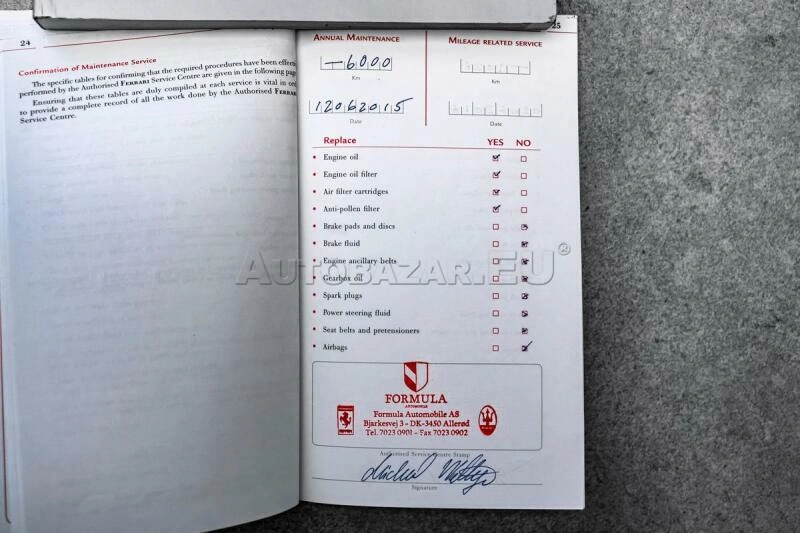 24
Confirmation of Maintenance Service
The specific tables for confirming that the required procedures have been
performed by the Authorised FERRARI Service Centre are given in the following
Ensuring that these tables are duly compiled at each service is vital in
to provide a complete record of all the work done by the Authorised
Service Centre.
25
ANNUAL MAINTENANCE
MILEAGE RELATED SERVICE
-6000
Km
Km
12062015
Date
Date
Replace YES NO
• Engine oil
• Engine oil filter
• Air filter cartridges
• Anti-pollen filter
• Brake pads and discs
• Brake fluid
• Engine ancillary belts
• Gearbox oil
• Spark plugs
• Power steering fluid
• Seat belts and pretensioners
• Airbags
AUTOBAZAR.EU®
FORMULA
AUTOMOBILE
Formula Automobile AS
Bjarkesvej 3 - DK-3450 Allerød
Tel. 7023 0901 - Fax 7023 0902
Authorised Service Centre Stamp
Signature